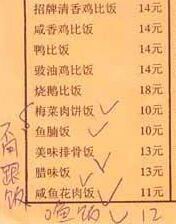 招牌清香鸡比饭 14元
咸香鸡比饭 14元
鸭比饭 14元
豉油鸡比饭 14元
烧鹅比饭 18元
梅菜肉饼饭 10元
鱼腩饭 10元
美味排骨饭 13元
腊味饭 13元
咸鱼花肉饭 11元
饭 12